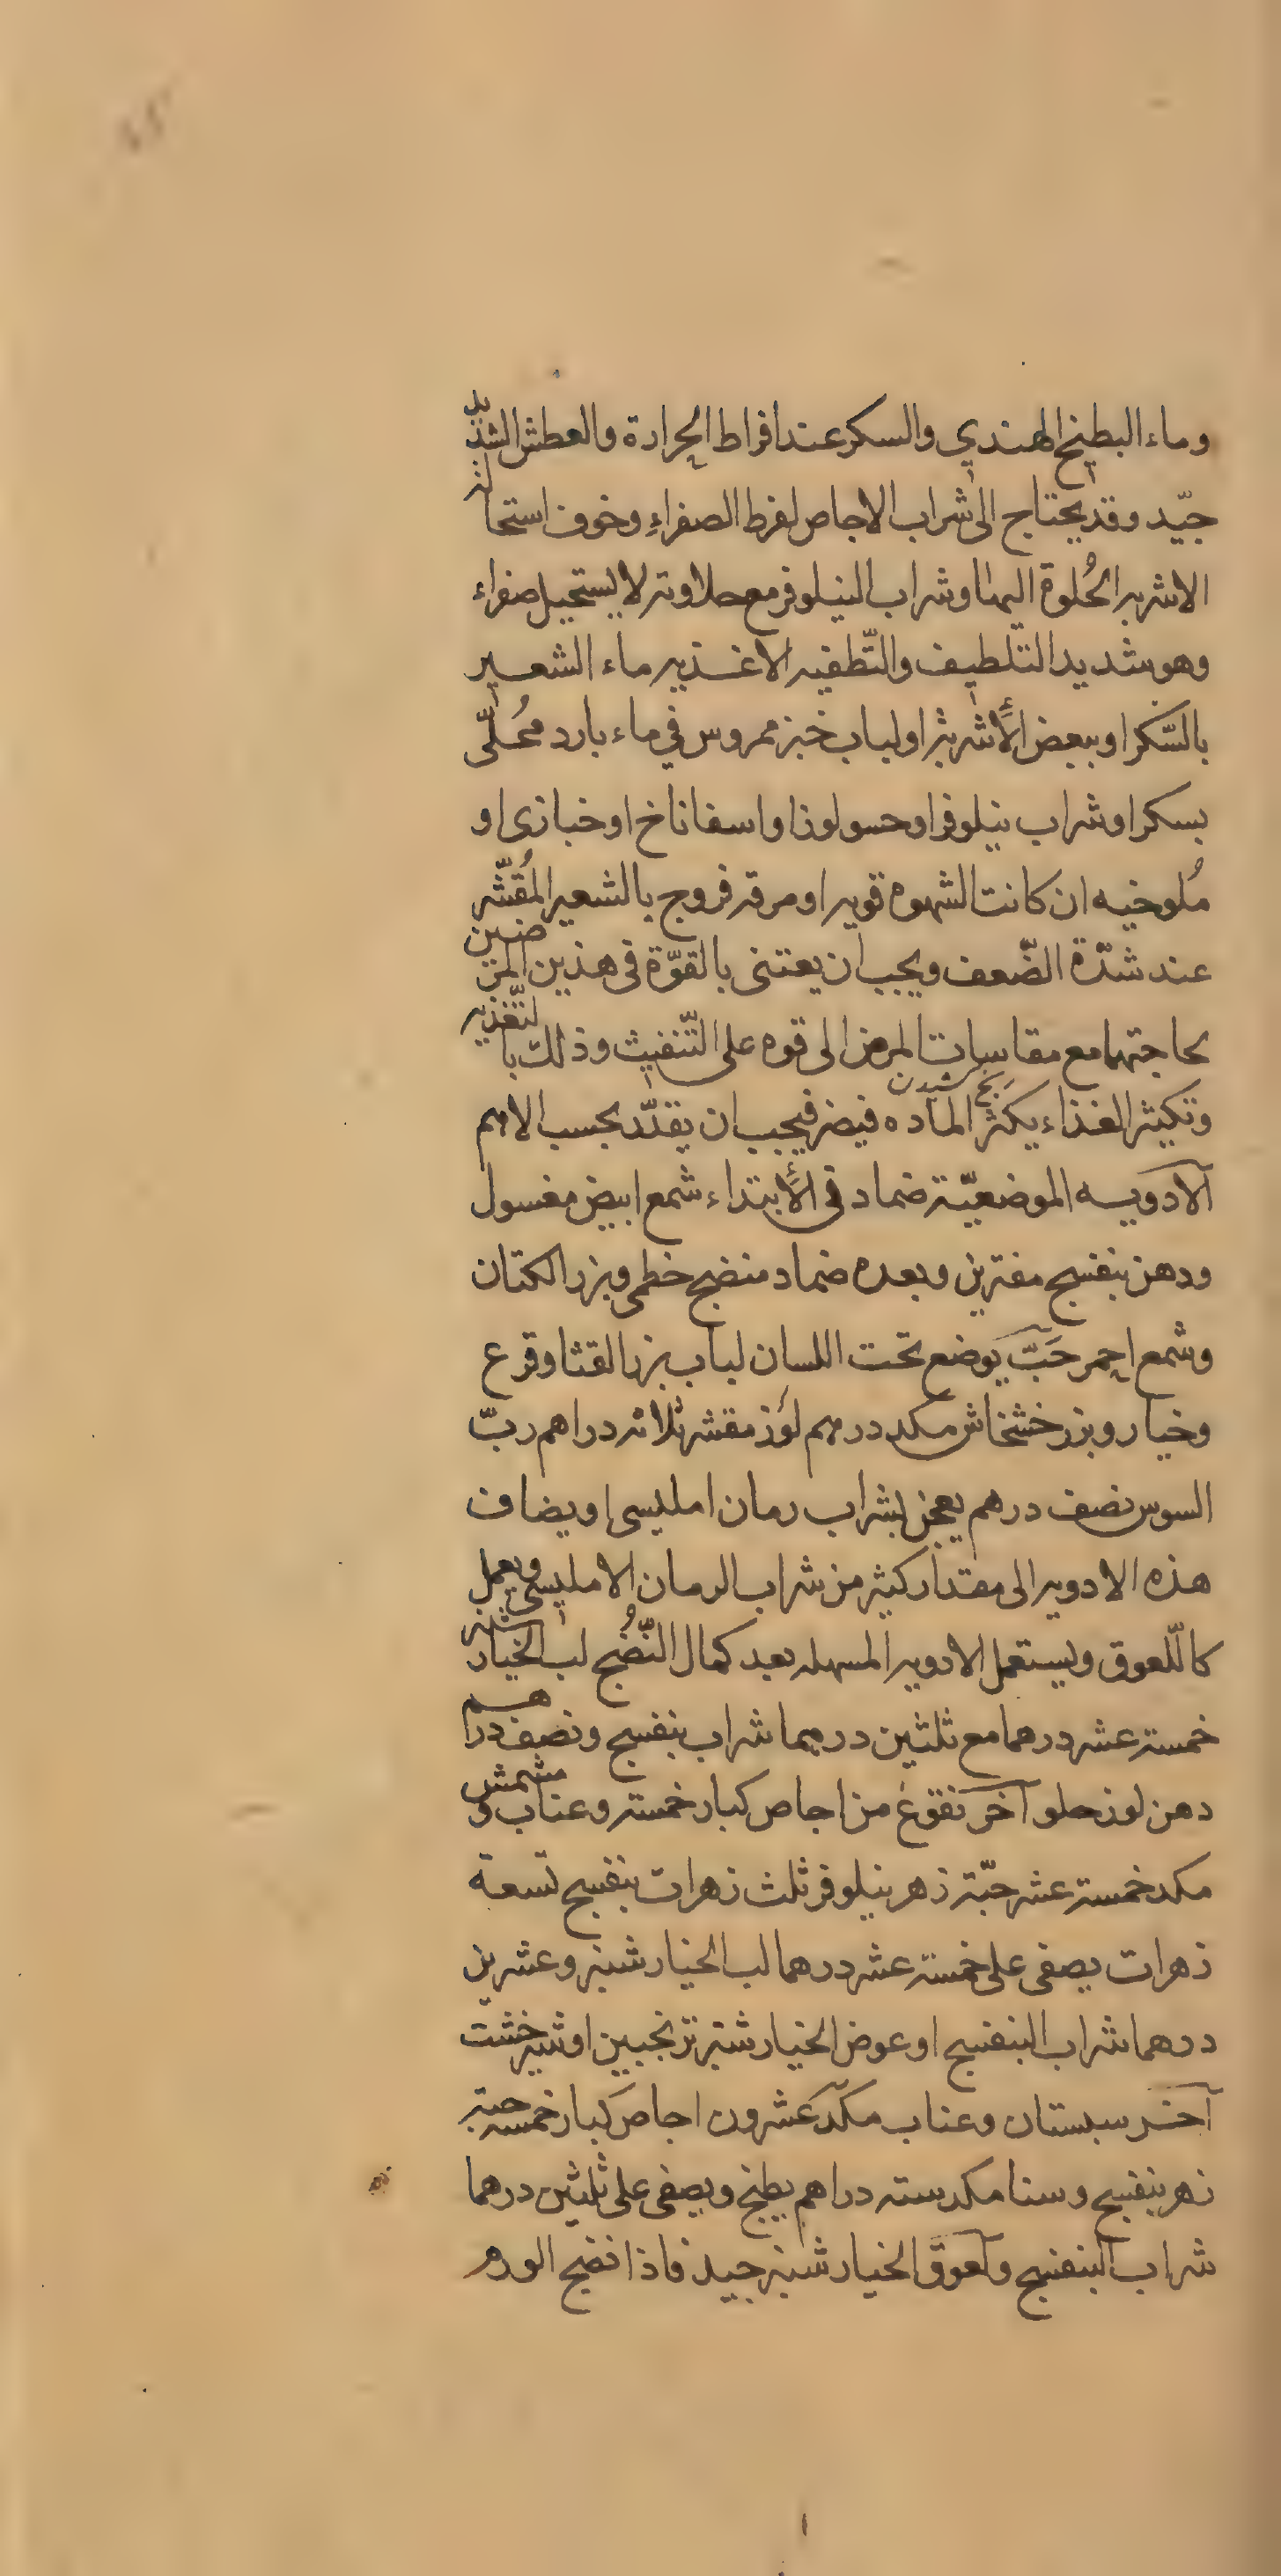 وماء البطيخ الهندي والسكر عند افراط الحرارة والعطش الشديد
جيّد وقد يحتاج الى شراب الاجاص لفرط الصفراءِ وخوف استحالته
الاشربه الحُلوة اليها وشراب النيلوفر مع حلاوته لا يستحيل صفراء
وهو شديد التلطيف والتّطفيه الاغذيه ماء الشعير
بالسّكر او ببعض الأشربة او لباب خبز ممروس في ماء بارد مُحلّى
بسكر او شراب نيلوفر او حسو لوز او اسفاناخ او خبازى او
مُلوخيه ان كانت الشهوه قويه او مرقه فروج بالشعير المُقشّر
عند شدّة الضّعف ويجب ان يعتنى بالقوّة فى هذين المرضين
لحاجتهما مع مقاسات المرض الى قوه على التّنفيث وذلك بالتّغذيه
وتكثير الغذاء يكثر المادّه فيضر فيجب ان يقدّر بحسب الاهم
الادويه الموضعيّة ضماد فى الأبتداء شمع ابيض مغسول
ودهن بنفسج مفترين وبعده ضماد منضج خطمى وبزر الكتان
وشمع احمر حَبّ يوضع تحت اللسان لباب بزر القثا وقرع
وخيار وبزر خشخاش مكد درهم لوز مقشر ثلاثه دراهم ربّ
السوس نصف درهم يعجن بشراب رمان امليسى او يضاف
هذه الادويه الى مقدار كثير من شراب الرمان الامليسى ويعمل
كاللّعوق ويستعمل الادويه المسهله بعد كمال النّضُج لب الخيارشنبر
خمسة عشر درهما مع ثلثين درهما شراب بنفسج ونصف دراهم
دهن لوز حلو آخر نقوع من اجاص كبار خمسة وعناب ومشمش
مكد خمسة عشر حبّة زهر نيلوفر ثلث زهرات بنفسج تسعة
زهرات يصفى على خمسة عشر درهما لب الخيارشنبر وعشرين
درهما شراب البنفسج او عوض الخيارشنبر ترنجبين او شيرخشت
آخر سبستان وعناب مكد عشرون اجاص كبار خمسه حبة
زهر بنفسج وسنا مكد سته دراهم يطبخ ويصفى على ثلثين درهما
شراب البنفسج ولعوق الخيارشنبر جيد فاذا نضج الورم